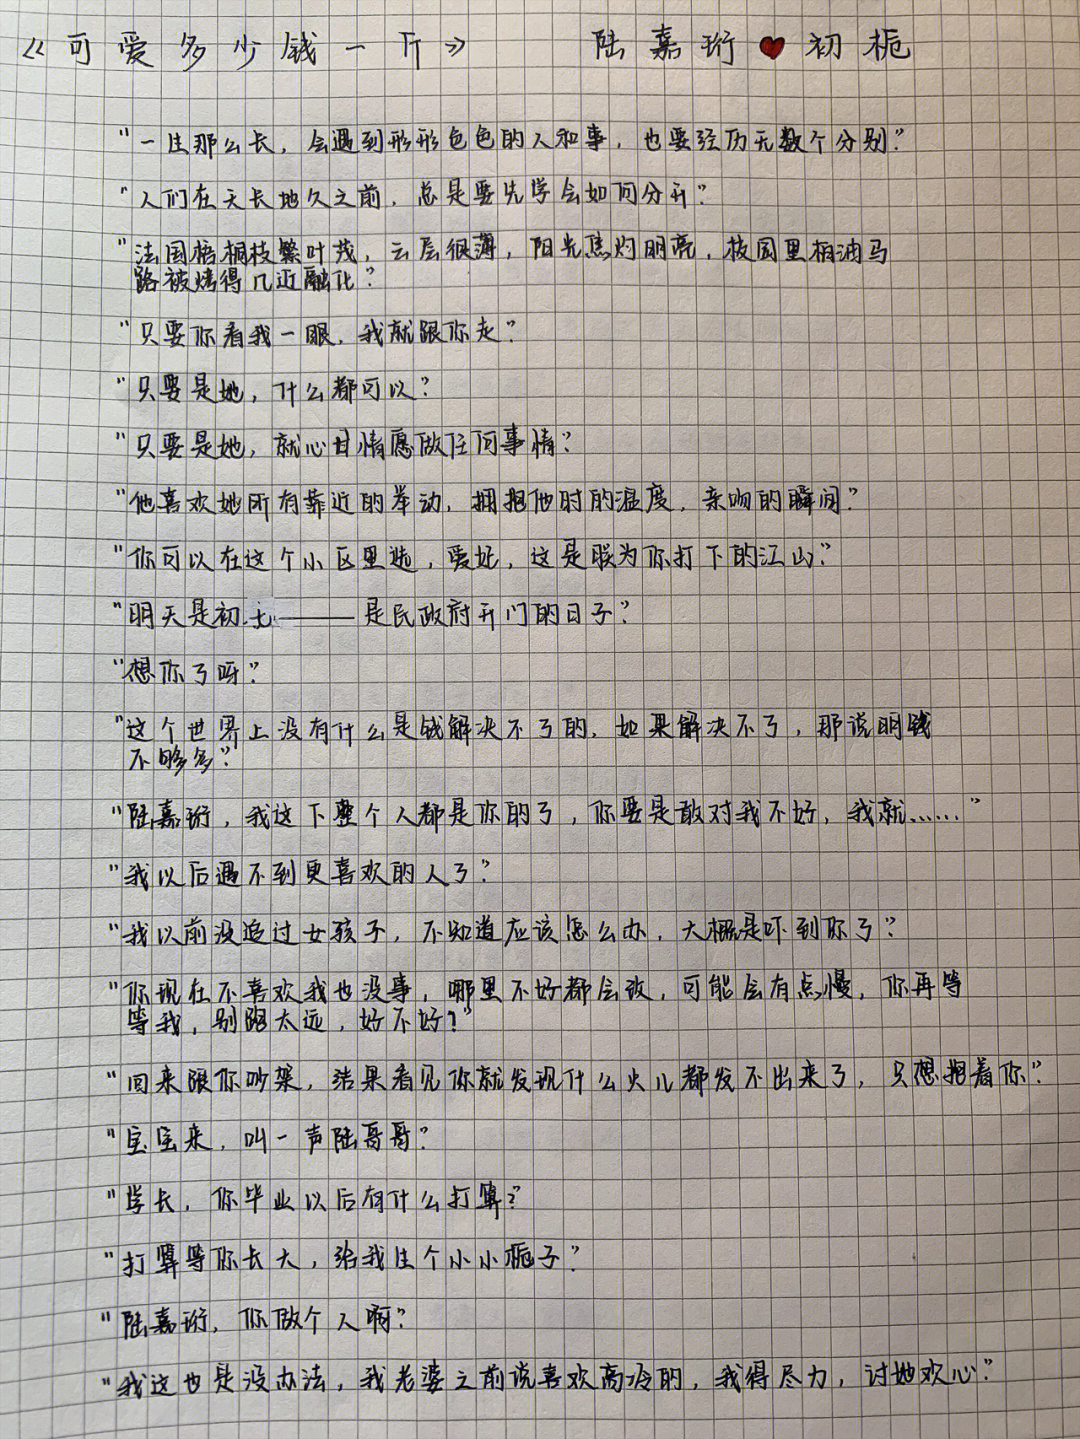 《可爱多少钱一斤》 陆嘉珩❤初栀
“一生那么长，会遇到形形色色的人和事，也要经历无数个分别”
“人们在天长地久之前，总是要先学会如何分开”
“法国梧桐枝繁叶茂，云层很薄，阳光焦灼明亮，校园里柏油马
路被烤得几近融化”
“只要你看我一眼，我就跟你走”
“只要是她，什么都可以”
“只要是她，就心甘情愿做任何事情”
“他喜欢她所有靠近的举动，拥抱他时的温度，亲吻的瞬间”
“你可以在这个小区里逛，爱妃，这是朕为你打下的江山”
“明天是初七———是民政府开门的日子”
“想你了呀”
“这个世界上没有什么是钱解决不了的，如果解决不了，那说明钱
不够多”
“陆嘉珩，我这下整个人都是你的了，你要是敢对我不好，我就……”
“我以后遇不到更喜欢的人了”
“我以前没追过女孩子，不知道应该怎么办，大概是吓到你了”
“你现在不喜欢我也没事，哪里不好都会改，可能会有点慢，你再等
等我，别跑太远，好不好？”
“回来跟你吵架，结果看见你就发现什么火儿都发不出来了，只想抱着你”
“宝宝来，叫一声陆哥哥”
“学长，你毕业以后有什么打算？”
“打算等你长大，给我生个小小栀子”
“陆嘉珩，你做个人啊”
“我这也是没办法，我老婆之前说喜欢高冷的，我得尽力，讨她欢心”